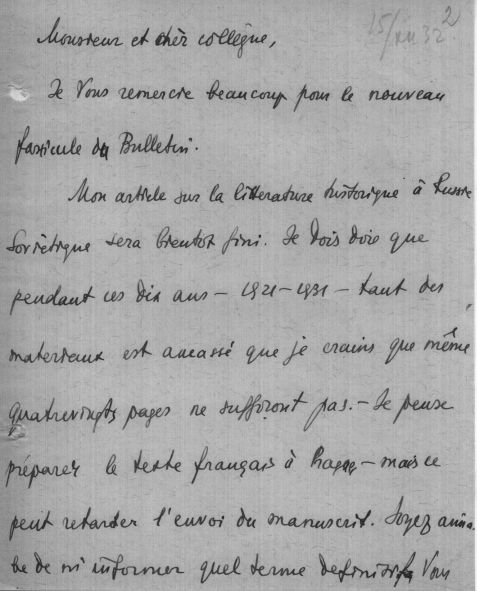 15/XII 32 2
Monsieur et chèr collègue,
Je Vous remercie beaucoup pour le nouveau
fascicule du Bulletin.
Mon article sur la litterature historique à Russie
Sovietique sera bientot fini. Je dois dire que
pendant ces dix ans – 1921–1931 – tant des
materiaux est amassé que je crains que même
quatrevingts pages ne suffiront pas. – Je pense
préparer le texte français à Prague – mais ce
peut retarder l'envoi du manuscrit. Soyez aima
ble de m'informer quel terme definitif Vous